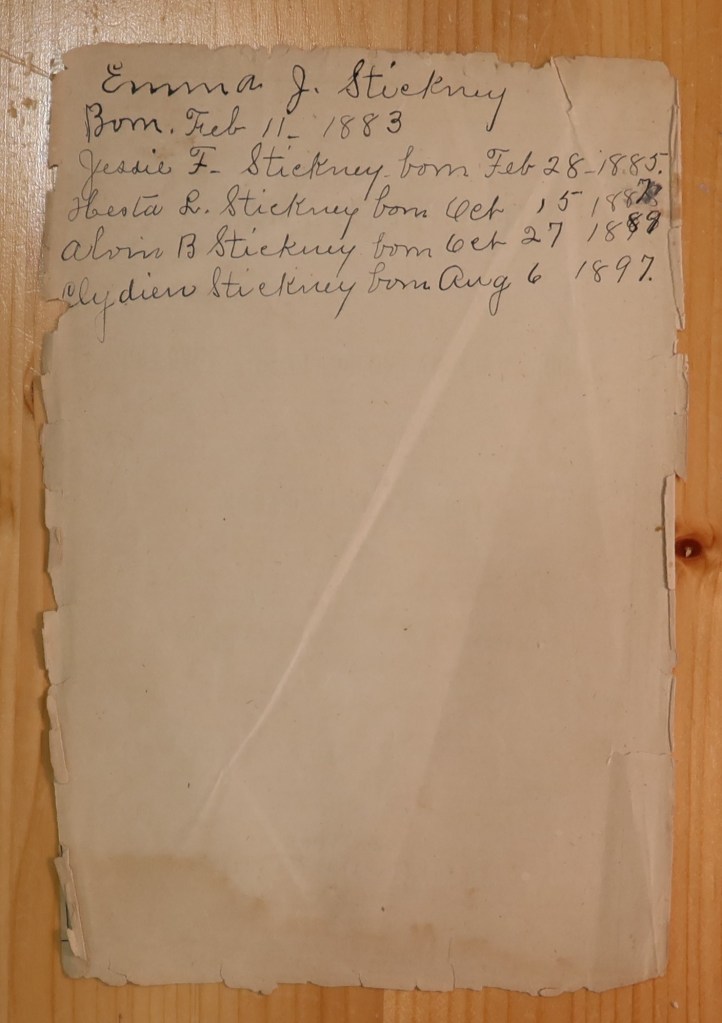 Emma J. Stickney
Born. Feb 11- 1883
Jessie F- Stickney born Feb 28-1885.
Hesta L. Stickney born Oct 15 1887
Alvin B Stickney born Oct 27 1889
Clydien Stickney born Aug 6 1897.